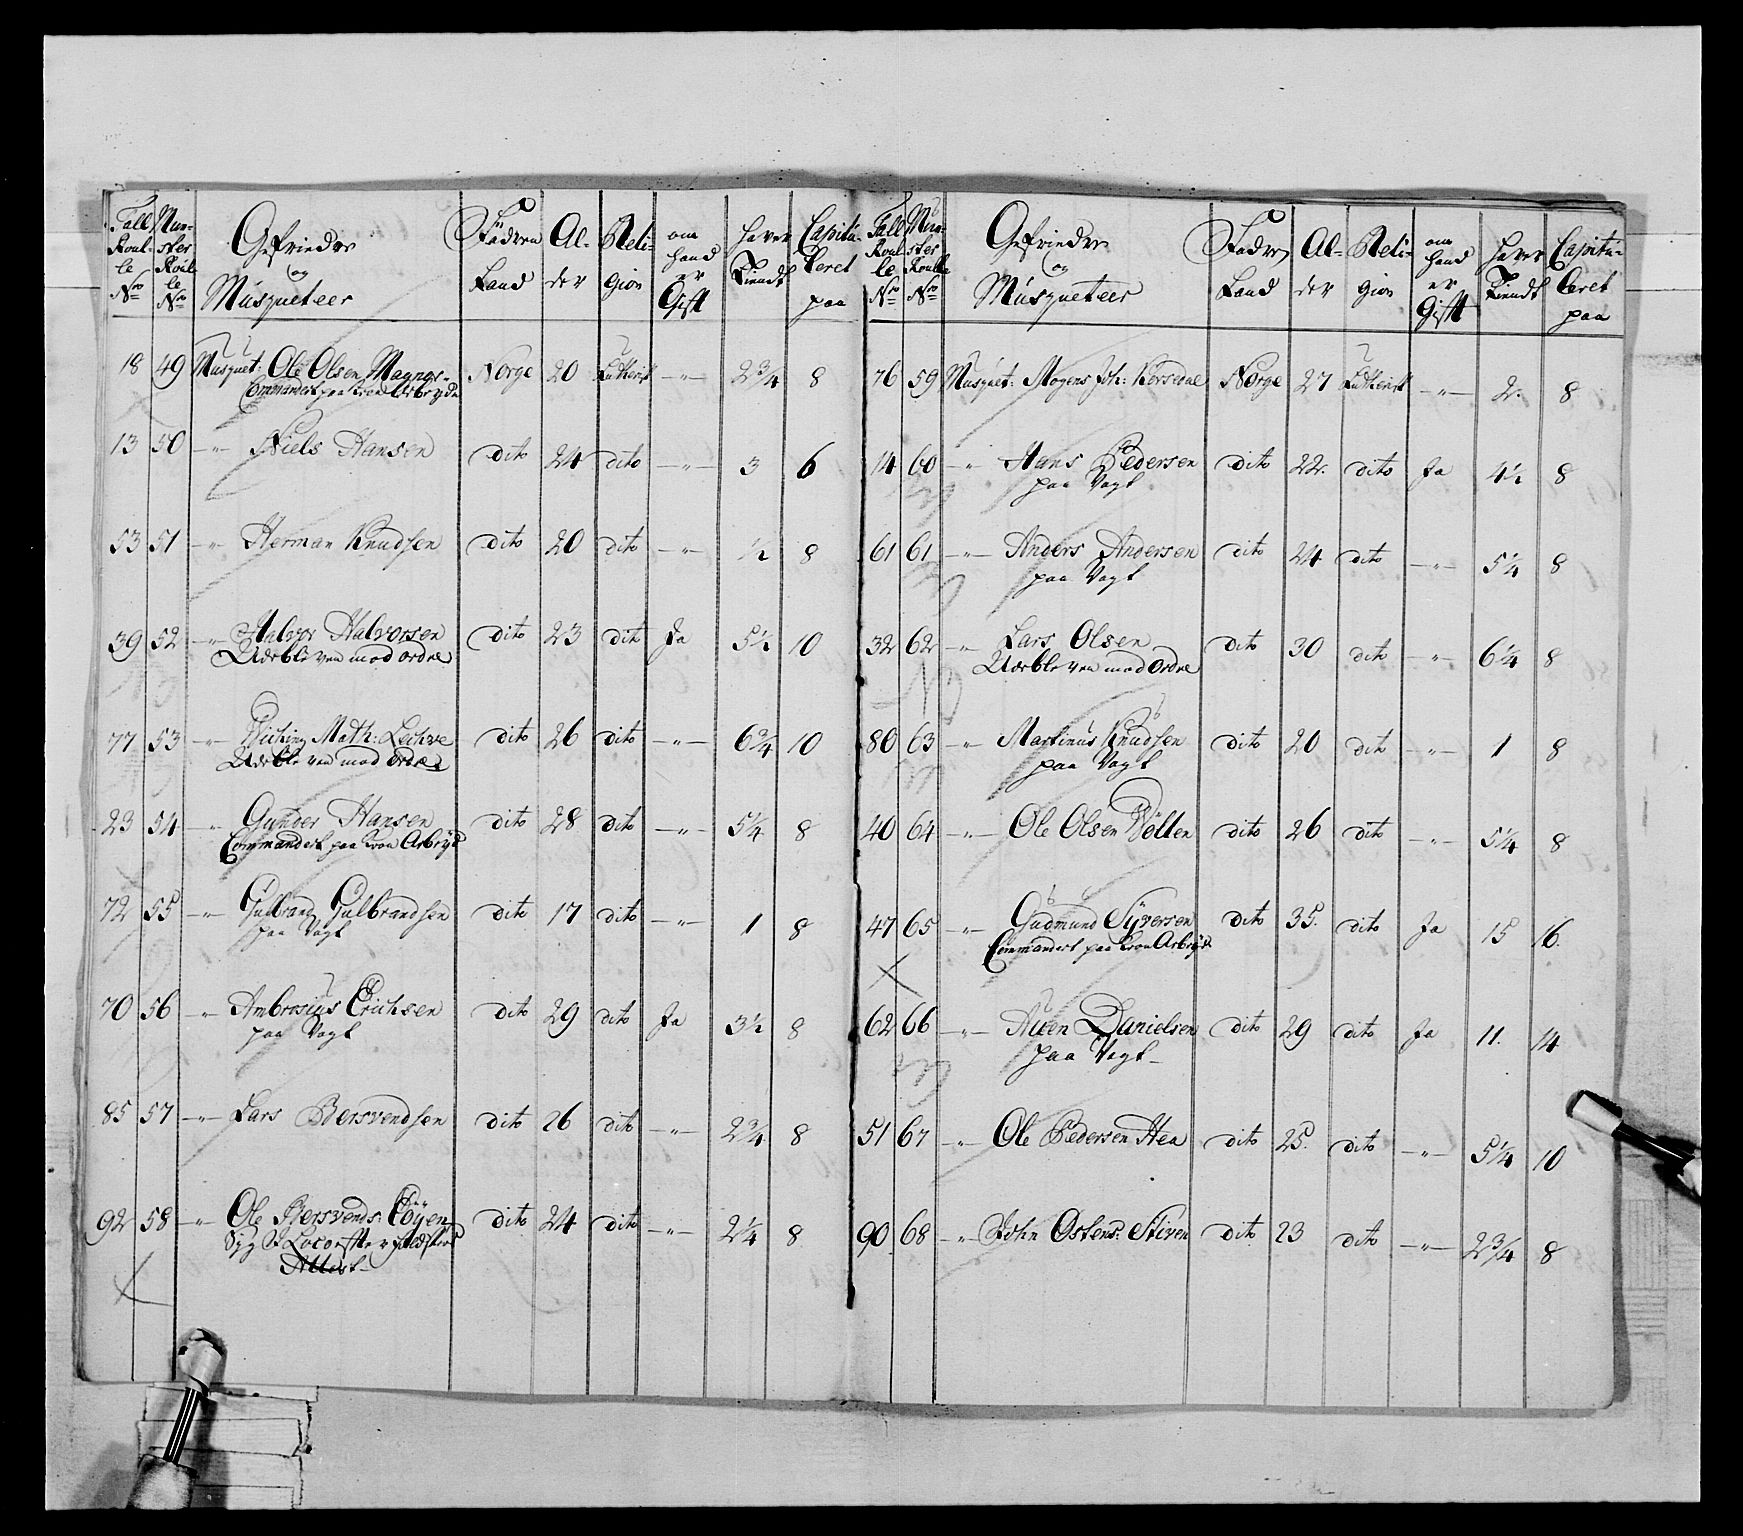 Tall Roulle No | Mynster Roulle No | Gefriedre og Musqueteer | Födren Land | Alder | Religion | om hand er Gift | haver tiendt | Capituleret paa
18 | 49 | Musquet: Ole Olsen Magnor | Norge | 20 | Luthersk | -"- | 2 3/4 | 8
Commandert paa Kron Arbeyde
13 | 50 | -"- Niels Hansen | dito | 24 | dito | -"- | 3 | 6
53 | 51 | -"- Herman Knudsen | dito | 20 | dito | -"- | 1/2 | 8
39 | 52 | -"- Halvor Halvorsen | dito | 23 | dito | Ja | 5 1/2 | 10
Udebleven mod ordre
77 | 53 | -"- Math: | dito | 26 | dito | -"- | 6 3/4 | 10
Udebleven mod Ordre
23 | 54 | -"- Gunder Hansen | dito | 28 | dito | -"- | 5 1/4 | 8
Commandert paa Kron Arbeyd
72 | 55 | -"- Gulbrand Gulbrandsen | dito | 17 | dito | -"- | 1 | 8
paa Vagt
70 | 56 | -"- Ambrosius Erichsen | dito | 29 | dito | Ja | 3 1/2 | 8
paa Vagt
85 | 57 | -"- Lars Bersvendsen | dito | 26 | dito | -"- | 2 3/4 | 8
92 | 58 | -"- Ole Bersvends: | dito | 24 | dito | -"- | 2 1/4 | 8
Syg
Attest
Tall Roulle No | Mynster Roulle No | Gefriedre og Musqueteer | Fædre Land | Alder | Religion | om hand er Gift | haver tiendt | Capituleret paa
76 | 59 | Musquet: Mogens Joh: | Norge | 27 | Luthersk | -"- | 2. | 8
14 | 60 | -"- Hans Pedersen | dito | 22. | dito | Ja | 4 1/2 | 8
paa Vagt
61 | 61 | -"- Anders Andersen | dito | 24 | dito | -"- | 5 1/4 | 8
paa Vagt
32 | 62 | -"- Lars Olsen | dito | 30 | dito | -"- | 6 1/4 | 8
Udebleven mod Ordre
80 | 63 | -"- Martinus Knudsen | dito | 20 | dito | -"- | 1 | 8
paa Vagt
40 | 64 | -"- Ole Olsen | dito | 26 | dito | -"- | 5 1/4 | 8
47 | 65 | -"- Gudmund Syversen | dito | 35. | dito | Ja | 15 | 16.
Commandert paa Kron Arbeyd
62 | 66 | -"- Danielsen | dito | 29 | dito | Ja | 11. | 14
paa Vagt
51 | 67 | -"- Ole Pedersen Hea | dito | 25. | dito | -"- | 5 1/4 | 10
90 | 68 | -"- John Ostens: | dito | 23 | dito | -"- | 2 3/4 | 8